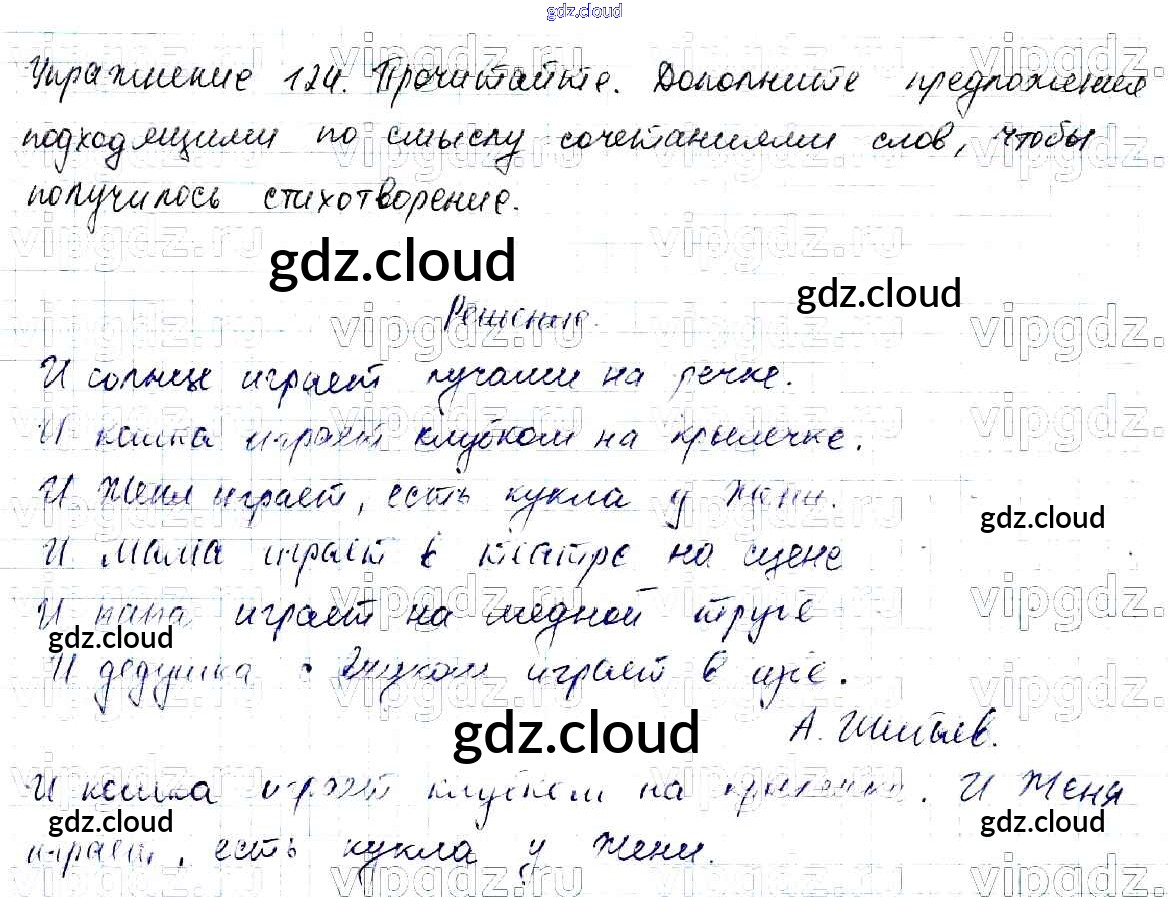 gdz.cloud
Упражнение 124. Прочитайте. Дополните предложения
подходящими по смыслу сочетаниями слов, чтобы
получилось стихотворение.
gdz.cloud
gdz.cloud
Решение.
И солнце играет лучами на речке.
И кошка играет клубком на крылечке.
И Женя играет, есть кукла у Жени.
gdz.cloud
И мама играет в театре на сцене
И папа играет на медной трубе
gdz.cloud
И дедушка играет в
gdz.cloud
А.
И кошка играет клубком на крылечке. И Женя
gdz.cloud
gdz.cloud
играет, есть кукла у Жени.
vipgdz.ru